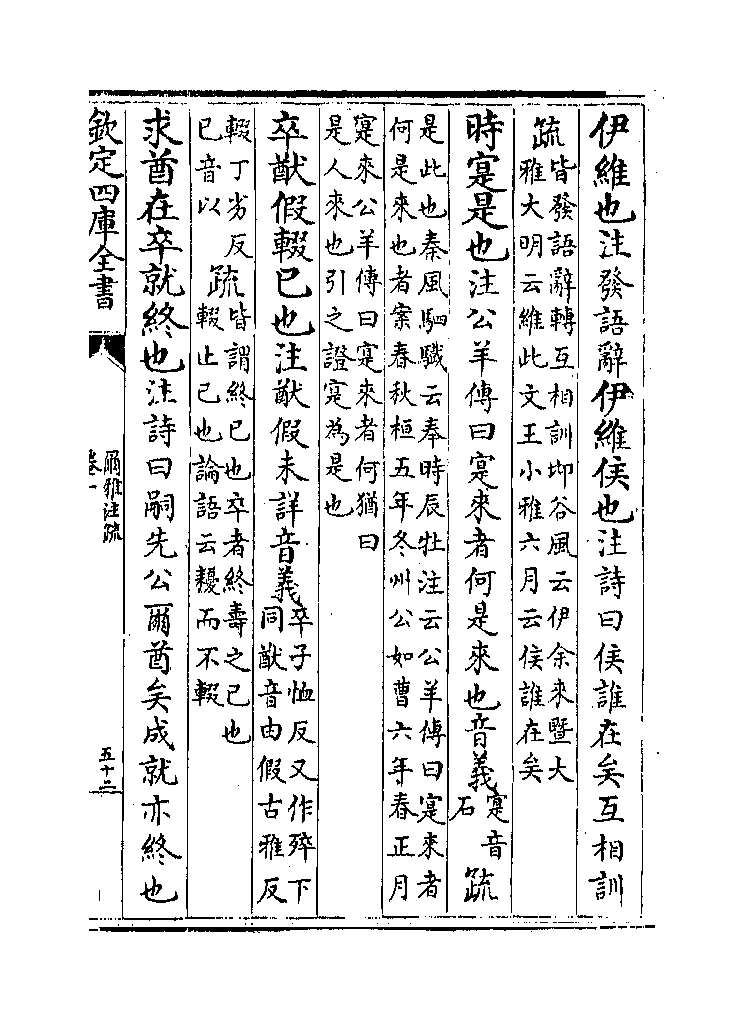 伊維也注發語辭伊維侯也注詩曰侯誰在矣互相訓
疏皆發語辭轉互相訓邶谷風云伊余來暨大
雅大明云維此文王小雅六月云侯誰在矣
時寔是也注公羊傳曰寔來者何是來也音義寔音石疏
是此也秦風駟驖云奉時辰牡注云公羊傳曰寔來者
何是來也者案春秋桓五年冬州公如曹六年春正月
寔來公羊傳曰寔來者何猶曰
是人來也引之證寔為是也
卒猷假輟已也注猷假未詳音義卒子恤反又作殚下
同猷音由假古雅反
輟丁劣反
已音以疏皆謂終已也卒者終壽之已也
輟止已也論語云耰而不輟
求酋在卒就終也注詩曰嗣先公爾酋矣成就亦終也
欽定四庫全書
爾雅注疏
卷一
五十二